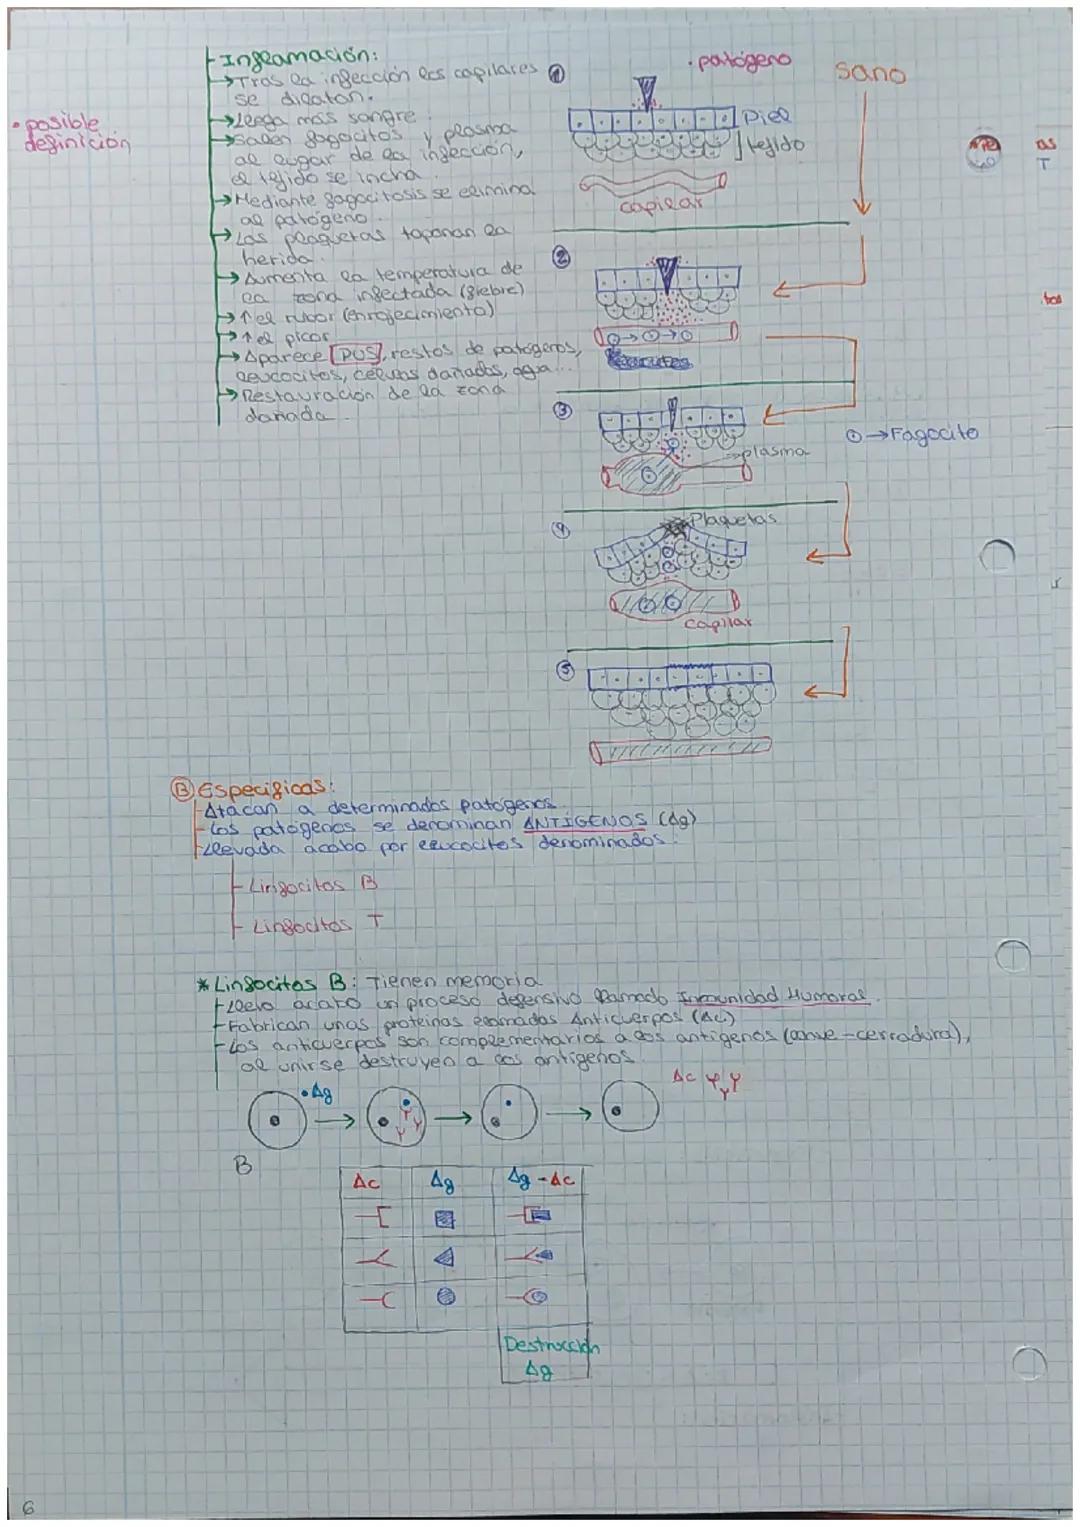 Inflamación:
→Tras la infección los capilares
se dilatan.
→Llega más sangre.
→Salen fagocitos y plasma
al lugar de la infección,
el tejido se incha.
→Mediante fagocitosis se elimina
al patógeno.
→Las plaquetas taponan la
herida.
→Aumenta la temperatura de
la zona infectada (fiebre)
→↑ el rubor (enrojecimiento)
→↑ el picor
→Aparece PUS, restos de patógenos,
leucocitos, células dañadas, agua...
→Restauración de la zona
dañada.
• posible
definición
①
· patógeno
sano
Piel
tejido
capilar
②
③
plasma
→Fagocito
④
Plaquetas
Capilar
⑤
Ⓑ Específicas:
-Atacan a determinados patógenos.
-Los patógenos se denominan ANTÍGENOS (Ag)
-Llevada acabo por leucocitos denominados:
- Linfocitos B
- Linfocitos T
* Linfocitos B: Tienen memoria
-Lleva acabo un proceso defensivo llamado Inmunidad Humoral.
-Fabrican unas proteinas llamadas Anticuerpos (Ac)
-Los anticuerpos son complementarios a los antígenos (llave-cerradura),
al unirse destruyen a los antígenos.
• Ag
Ac
B
Ac Ag Ag - Ac
Destrucción
Ag
as
T
tos
6